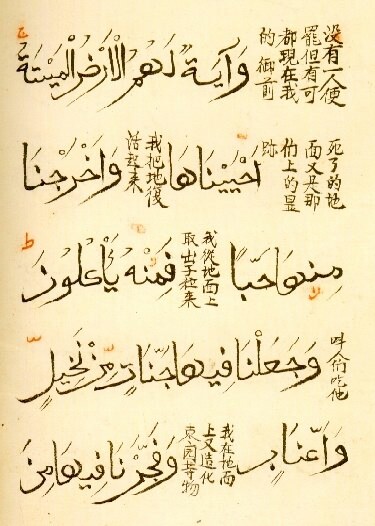 没有一人便
罷但有可
都現在我
的御前
وَآيَةٌ لَهُمُ الْأَرْضُ الْمَيْتَةُ
死了的地
面又是那
上的显
跡
أَحْيَيْنَاهَا
我把地復
活起来
وَأَخْرَجْنَا
مِنْهَا حَبًّا
我從地面上
取出子粒来
فَمِنْهُ يَأْكُلُونَ
吃他
وَجَعَلْنَا فِيهَا جَنَّاتٍ مِنْ نَخِيلٍ
وَأَعْنَابٍ
我在地面
上又造化
园等物
وَفَجَّرْنَا فِيهَا مِنَ